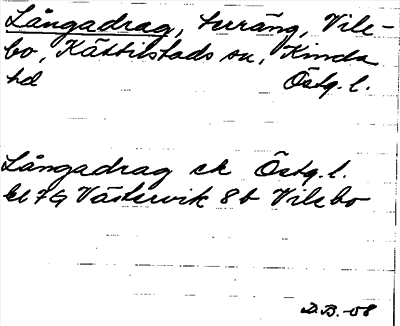 Långadrag, terräng, Vils-
bo, Kättilstads sn, Kinda
hd Östg. l.
Långadrag ek Östg. l.
bl 7G Västervik 8b Vilsbo
D.B.-08